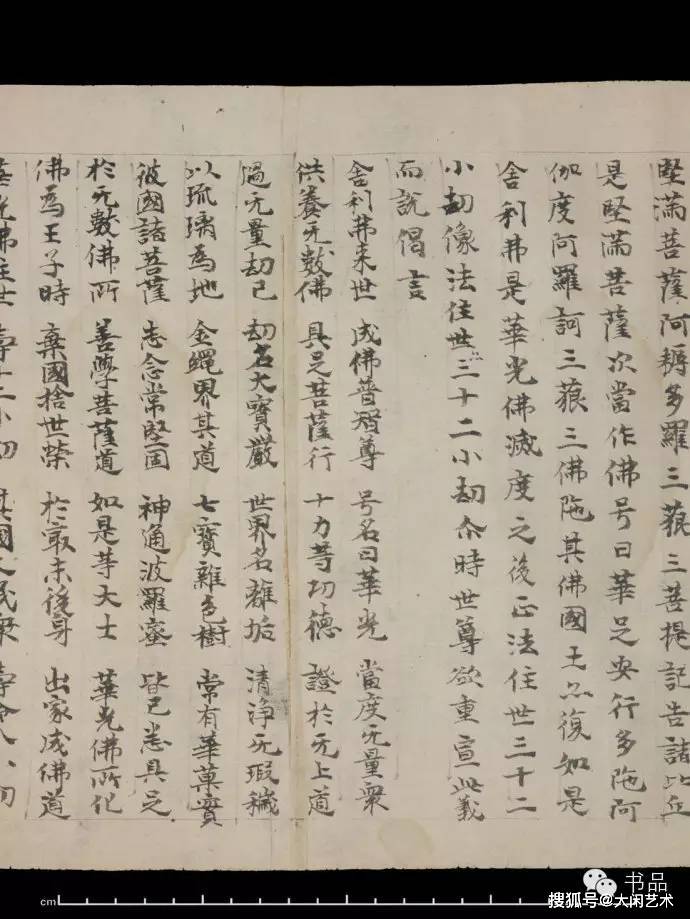 堅滿菩薩阿耨多羅三藐三菩提記告諸比丘
是堅滿菩薩次當作佛号曰華足安行多陁阿
伽度阿羅訶三藐三佛陁其佛國土亦復如是
舍利弗是華光佛滅度之後正法住世三十二
小劫像法住世三十二小劫尒時世尊欲重宣此義
而說偈言
舍利弗來世 成佛普智尊 号名曰華光 當度无量衆
供養无數佛 具足菩薩行 十力等功德 證於无上道
過无量劫已 劫名大寶嚴 世界名離垢 清淨无瑕穢
以琉璃為地 金繩界其道 七寶雜色樹 常有華菓實
彼國諸菩薩 志念常堅固 神通波羅蜜 皆已悉具足
於无數佛所 善學菩薩道 如是等大士 華光佛所化
佛為王子時 棄國捨世榮 於最末後身 出家成佛道
華光佛住世 壽十二小劫 其國人民衆 壽命八小劫
cm
书品
搜狐号@大闲艺术